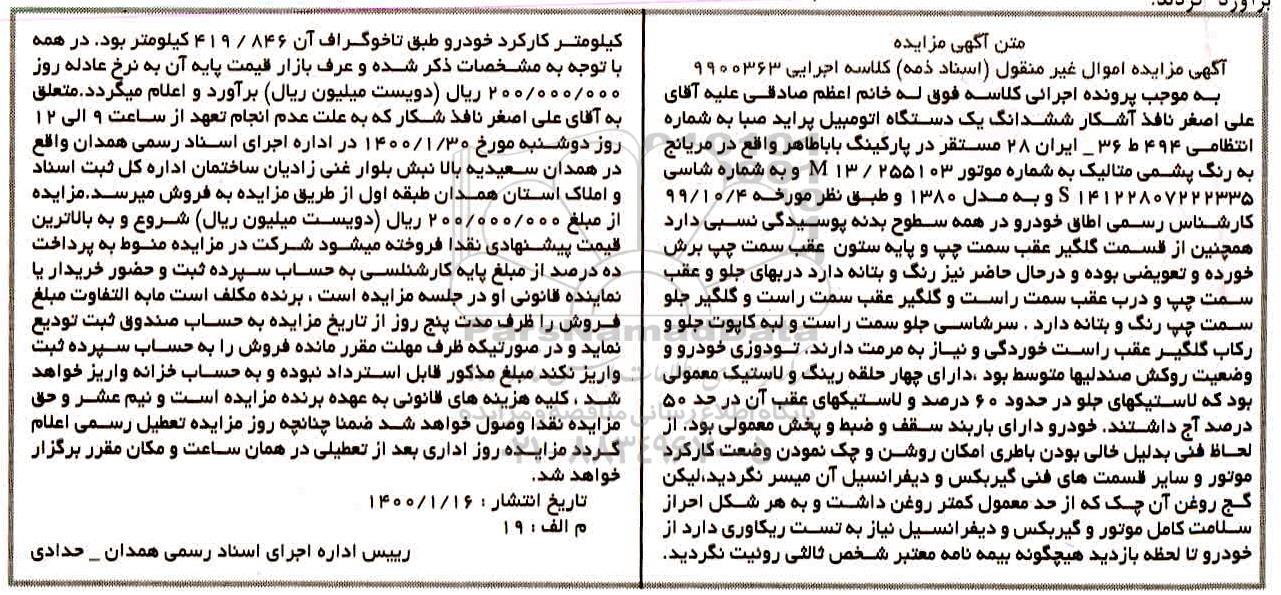 برآورد گردند.
متن آگهی مزایده
آگهی مزایده اموال غیر منقول (اسناد ذمه) کلاسه اجرایی ۹۹۰۰۳۶۳
به موجب پرونده اجرائی کلاسه فوق له خانم اعظم صادقی علیه آقای
علی اصغر نافذ آشکار ششدانگ یک دستگاه اتومبیل پراید صبا به شماره
انتظامی ۴۹۴ ط ۳۶ _ ایران ۲۸ مستقر در پارکینگ باباطاهر واقع در مریانج
به رنگ پشمی متالیک به شماره موتور M ۱۳ / ۲۵۵۱۰۳ و به شماره شاسی
S ۱۴۱۲۲۸۰۷۲۲۲۳۳۵ و به مدل ۱۳۸۰ و طبق نظر مورخه ۹۹/۱۰/۴
کارشناس رسمی اطاق خودرو در همه سطوح بدنه پوسیدگی نسبی دارد
همچنین از قسمت گلگیر عقب سمت چپ و پایه ستون عقب سمت چپ برش
خورده و تعویضی بوده و درحال حاضر نیز رنگ و بتانه دارد دربهای جلو و عقب
سمت چپ و درب عقب سمت راست و گلگیر عقب سمت راست و گلگیر جلو
سمت چپ رنگ و بتانه دارد . سرشاسی جلو سمت راست و لبه کاپوت جلو و
رکاب گلگیر عقب راست خوردگی و نیاز به مرمت دارند. تودوزی خودرو و
وضعیت روکش صندلیها متوسط بود ،دارای چهار حلقه رینگ و لاستیک معمولی
بود که لاستیکهای جلو در حدود ۶۰ درصد و لاستیکهای عقب آن در حد ۵۰
درصد آج داشتند. خودرو دارای باربند سقف و ضبط و پخش معمولی بود. از
لحاظ فنی بدلیل خالی بودن باطری امکان روشن و چک نمودن وضعت کارکرد
موتور و سایر قسمت های فنی گیربکس و دیفرانسیل آن میسر نگردید،لیکن
گج روغن آن چک که از حد معمول کمتر روغن داشت و به هر شکل احراز
سلامت کامل موتور و گیربکس و دیفرانسیل نیاز به تست ریکاوری دارد از
خودرو تا لحظه بازدید هیچگونه بیمه نامه معتبر شخص ثالثی رونیت نگردید.
کیلومتر کارکرد خودرو طبق تاخوگراف آن ۸۴۶ / ۴۱۹ کیلومتر بود. در همه
با توجه به مشخصات ذکر شده و عرف بازار قیمت پایه آن به نرخ عادله روز
۲۰۰/۰۰۰/۰۰۰ ریال (دویست میلیون ریال) برآورد و اعلام میگردد.متعلق
به آقای علی اصغر نافذ شکار که به علت عدم انجام تعهد از ساعت ۹ الی ۱۲
روز دوشنبه مورخ ۱۴۰۰/۱/۳۰ در اداره اجرای اسناد رسمی همدان واقع
در همدان سعیدیه بالا نبش بلوار غنی زادیان ساختمان اداره کل ثبت اسناد
و املاک استان همدان طبقه اول از طریق مزایده به فروش میرسد.مزایده
از مبلغ ۲۰۰/۰۰۰/۰۰۰ ریال (دویست میلیون ریال) شروع و به بالاترین
قیمت پیشنهادی نقدا فروخته میشود شرکت در مزایده منوط به پرداخت
ده درصد از مبلغ پایه کارشنلسی به حساب سپرده ثبت و حضور خریدار یا
نماینده قانونی او در جلسه مزایده است ، برنده مکلف است مابه التفاوت مبلغ
فروش را ظرف مدت پنج روز از تاریخ مزایده به حساب صندوق ثبت تودیع
نماید و در صورتیکه ظرف مهلت مقرر مانده فروش را به حساب سپرده ثبت
واریز نکند مبلغ مذکور قابل استرداد نبوده و به حساب خزانه واریز خواهد
شد ، کلیه هزینه های قانونی به عهده برنده مزایده است و نیم عشر و حق
مزایده نقدا وصول خواهد شد ضمنا چنانچه روز مزایده تعطیل رسمی اعلام
گردد مزایده روز اداری بعد از تعطیلی در همان ساعت و مکان مقرر برگزار
خواهد شد.
تاریخ انتشار : ۱۴۰۰/۱/۱۶
م الف : ۱۹
رییس اداره اجرای اسناد رسمی همدان _ حدادی
ParsNamadData
پایگاه اطلاع رسانی مناقصه و مزایده